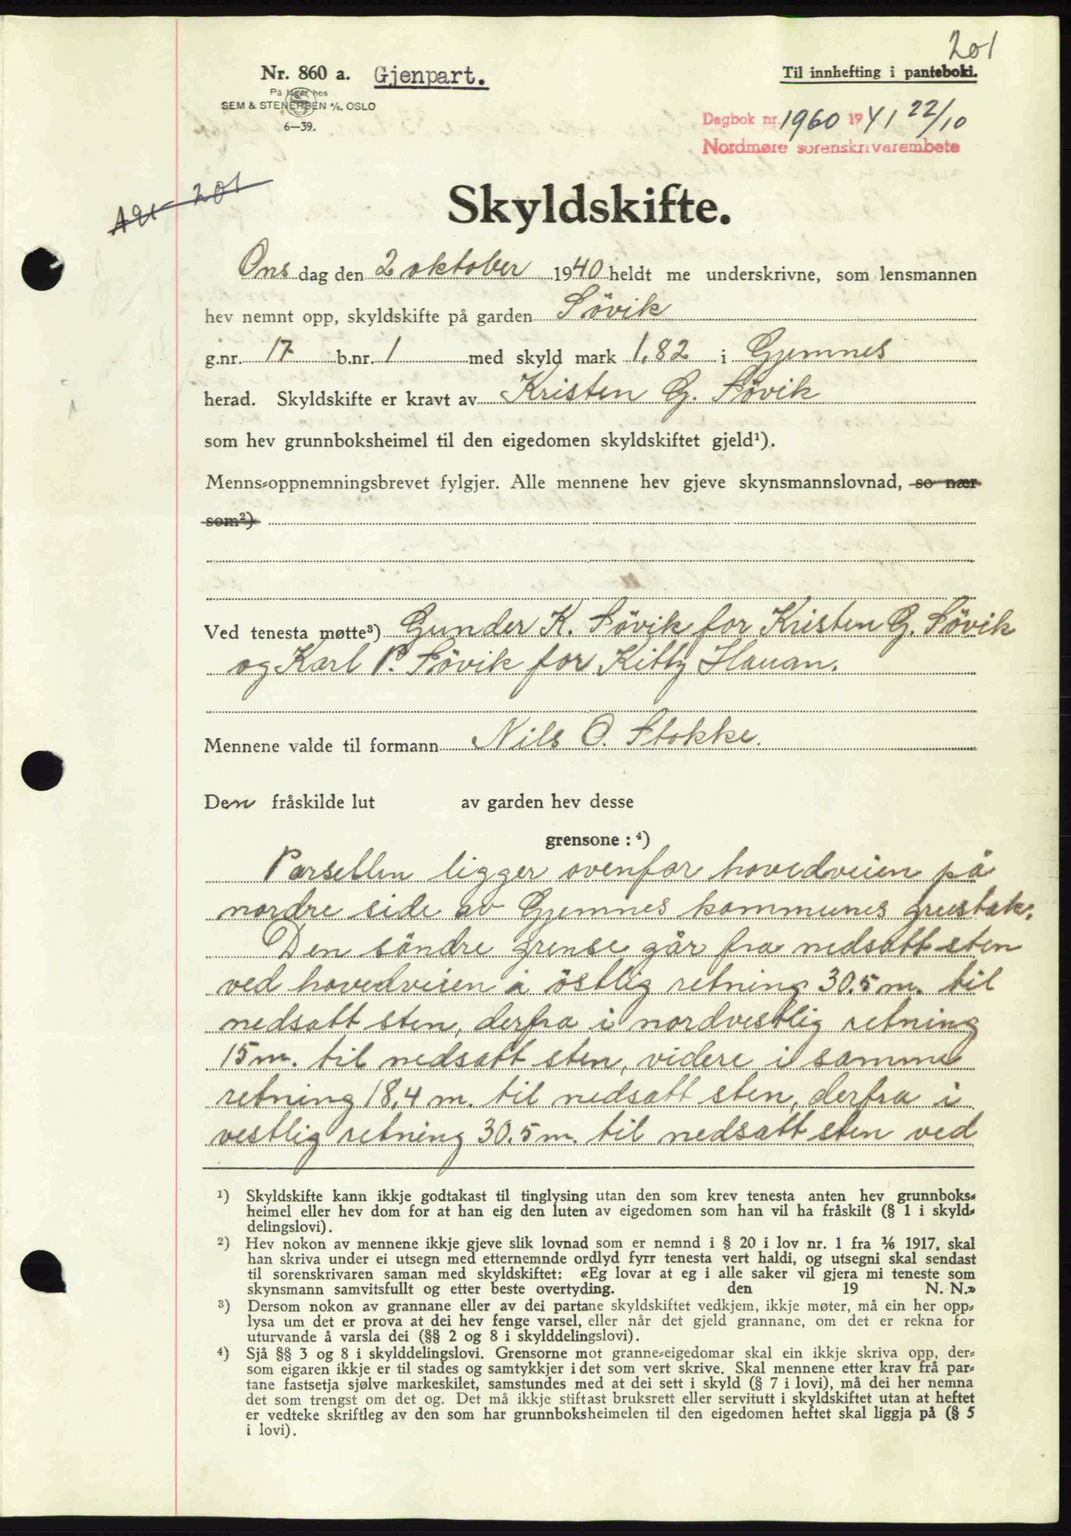 201
Nr. 860 a. Gjenpart.
Til innhefting i panteboki.
På lager hos
SEM & STENERSEN A/S, OSLO
6—39.
Dagbok nr. 1960 1941 22/10
Nordmøre sorenskrivarembete
A 91 - 201
Skyldskifte.
Ons dag den 2 oktober 1940 heldt me underskrivne, som lensmannen
hev nemnt opp, skyldskifte på garden Sövik
g.nr. 17 b.nr. 1 med skyld mark 1,82 i Gjemnes
herad. Skyldskifte er kravt av Kristen G. Sövik
som hev grunnboksheimel til den eigedomen skyldskiftet gjeld¹).
Menns-oppnemningsbrevet fylgjer. Alle mennene hev gjeve skynsmannslovnad, so nær
som²)
Ved tenesta møtte³) Gunder K. Sövik for Kristen G. Sövik
og Karl P. Sövik for Kitty Hauan.
Mennene valde til formann Nils O. Stokke.
Den fråskilde lut av garden hev desse
grensone : ⁴)
Parsellen ligger ovenfor hovedveien på
nordre side av Gjemnes kommunes grustak.
Den söndre grense går fra nedsatt sten
ved hovedveien i östlig retning 30.5 m. til
nedsatt sten, derfra i nordvestlig retning
15 m. til nedsatt sten, videre i samme
retning 18,4 m. til nedsatt sten, derfra i
vestlig retning 30.5 m. til nedsatt sten ved
¹) Skyldskifte kann ikkje godtakast til tinglysing utan den som krev tenesta anten hev grunnboks-
heimel eller hev dom for at han eig den luten av eigedomen som han vil ha fråskilt (§ 1 i skyld-
delingslovi).
²) Hev nokon av mennene ikkje gjeve slik lovnad som er nemnd i § 20 i lov nr. 1 fra ⅙ 1917, skal
han skriva under ei utsegn med etternemnde ordlyd fyrr tenesta vert haldi, og utsegni skal sendast
til sorenskrivaren saman med skyldskiftet: «Eg lovar at eg i alle saker vil gjera mi teneste som
skynsmann samvitsfullt og etter beste overtyding. den 19 N. N.»
³) Dersom nokon av grannane eller av dei partane skyldskiftet vedkjem, ikkje møter, må ein her opp-
lysa um det er prova at dei hev fenge varsel, eller når det gjeld grannane, om det er rekna for
uturvande å varsla dei (§§ 2 og 8 i skylddelingslovi).
⁴) Sjå §§ 3 og 8 i skylddelingslovi. Grensorne mot granne-eigedomar skal ein ikkje skriva opp, der-
som eigaren ikkje er til stades og samtykkjer i det som vert skrive. Skal mennene etter krav frå par-
tane fastsetja sjølve markeskilet, samstundes med at dei sett i skyld (§ 7 i lovi), må dei her nemna
det som trengst om det og. Det må ikkje stiftast bruksrett eller servitutt i skyldskiftet utan at heftet
er vedteke skriftleg av den som har grunnboksheimelen til den eigedomen heftet skal liggja på (§ 5
i lovi).